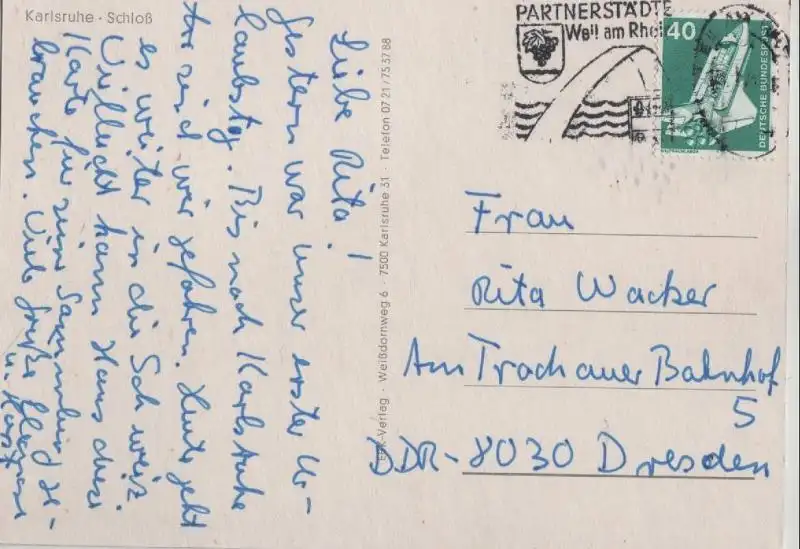 Karlsruhe · Schloß
Liebe Rita!
Gestern war unser erster Ur-
laubstag. Bis nach Karlsruhe
sind wir gefahren. Heute geht
es weiter in die Schweiz.
Vielleicht kann Hans diese
Karte für seine Sammlung ge-
brauchen. Viele Grüße
u. Horst
-Verlag · Weißdornweg 6 · 7500 Karlsruhe 31 · Telefon 07 21 / 75 37 88
PARTNERSTÄDTE
Weil am Rhei
40
DEUTSCHE BUNDESPOST
Frau
Rita Wacker
Am Trachauer Bahnhof
5
DDR-8030 Dresden